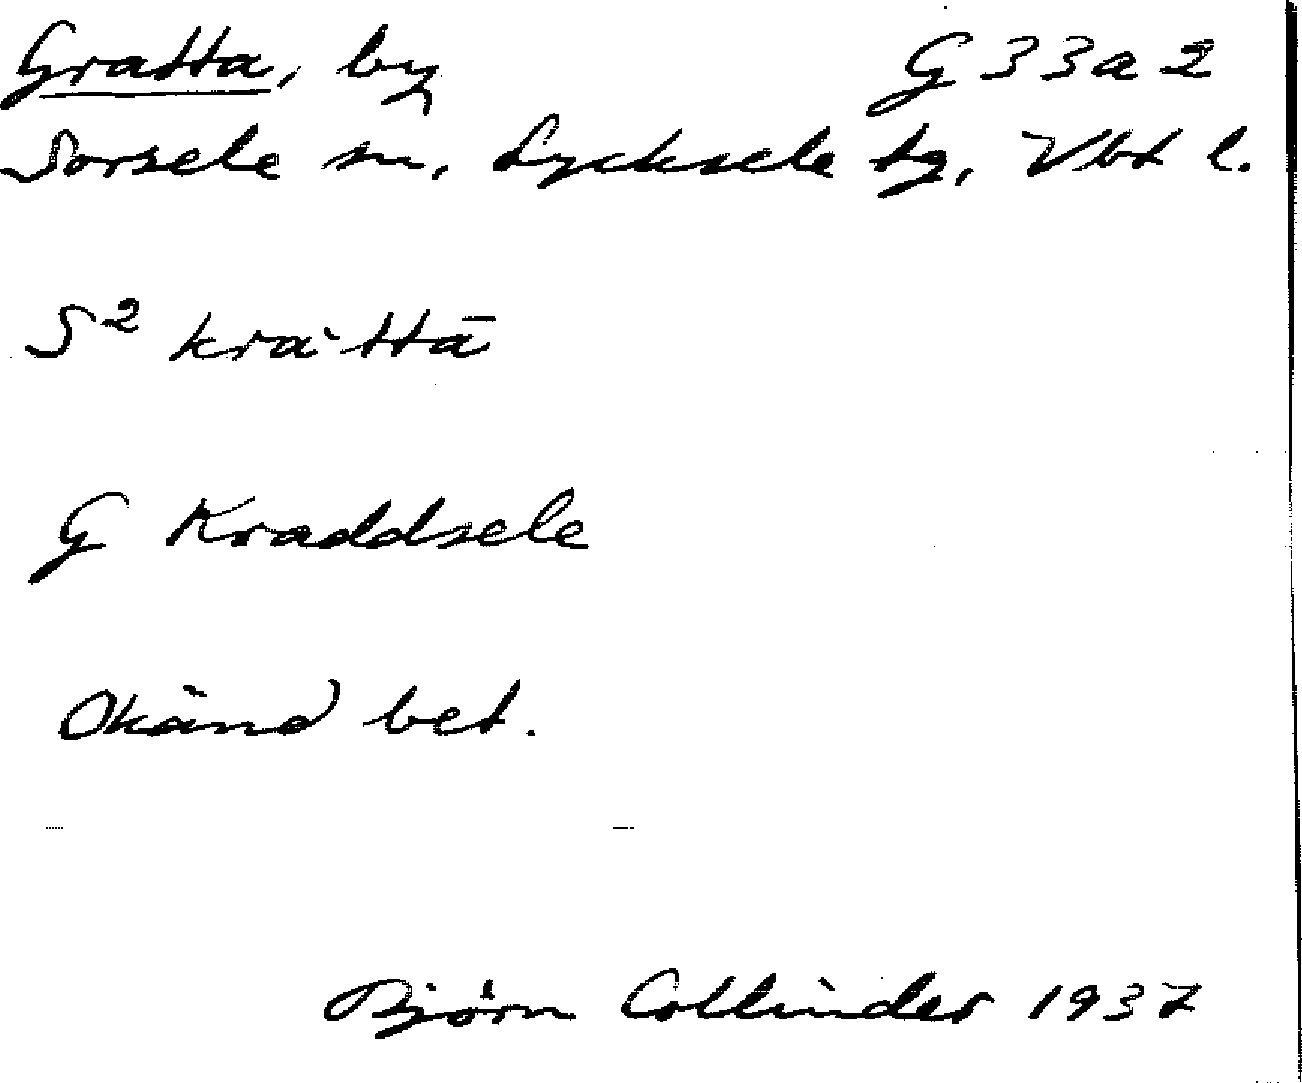 Gratta, by G 33 a 2
Sorsele sn, Lycksele tg, Vbt l.
S² krà·ttā
G Kraddsele
Okänd bet.
Björn Collinder 1937